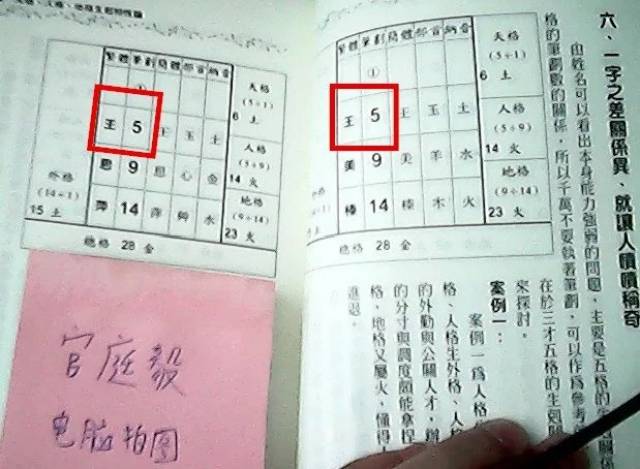 六、一字之差關係異、就讓人嘖嘖稱奇
由姓名可以看出本身能力強弱的問題，主要是五格的生
格的筆劃數的關係，所以千萬不要執著筆劃，可以作為參考
在於三才五格的生剋關
來探討。
案例一：
案例一為人格
格、人格生外格、人格
的外勤與公關人才，辦
的分寸與調度頗能拿捏
格，地格又屬火，懂得
進退。
繁體 筆劃 簡體 部首 納音
①
王 5 王 玉 土
美 9 美 羊 水
榛 14 榛 木 火
天格
(5+1)
6 土
人格
(5+9)
14 火
地格
(9+14)
23 火
總格 28 金
繁體 筆劃 簡體 部首 納音
①
王 5 王 玉 土
思 9 思 心 金
萍 14 萍 艸 水
天格
(5+1)
6 土
人格
(5+9)
14 火
地格
(9+14)
23 火
外格
(14+1)
15 土
總格 28 金
官庭毅
电脑拍图